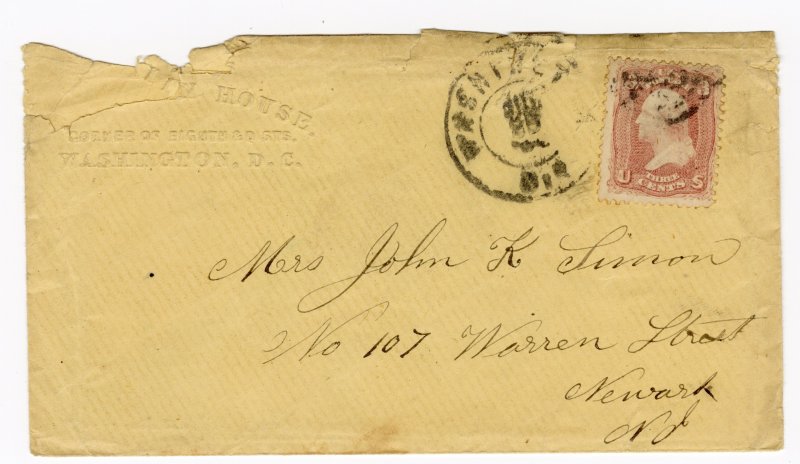 HOUSE,
CORNER OF EIGHTH & D STS.
WASHINGTON, D. C.
WASHINGTON
U THREE CENTS S
Mrs John K Simon
No 107 Warren Street
Newark
NJ